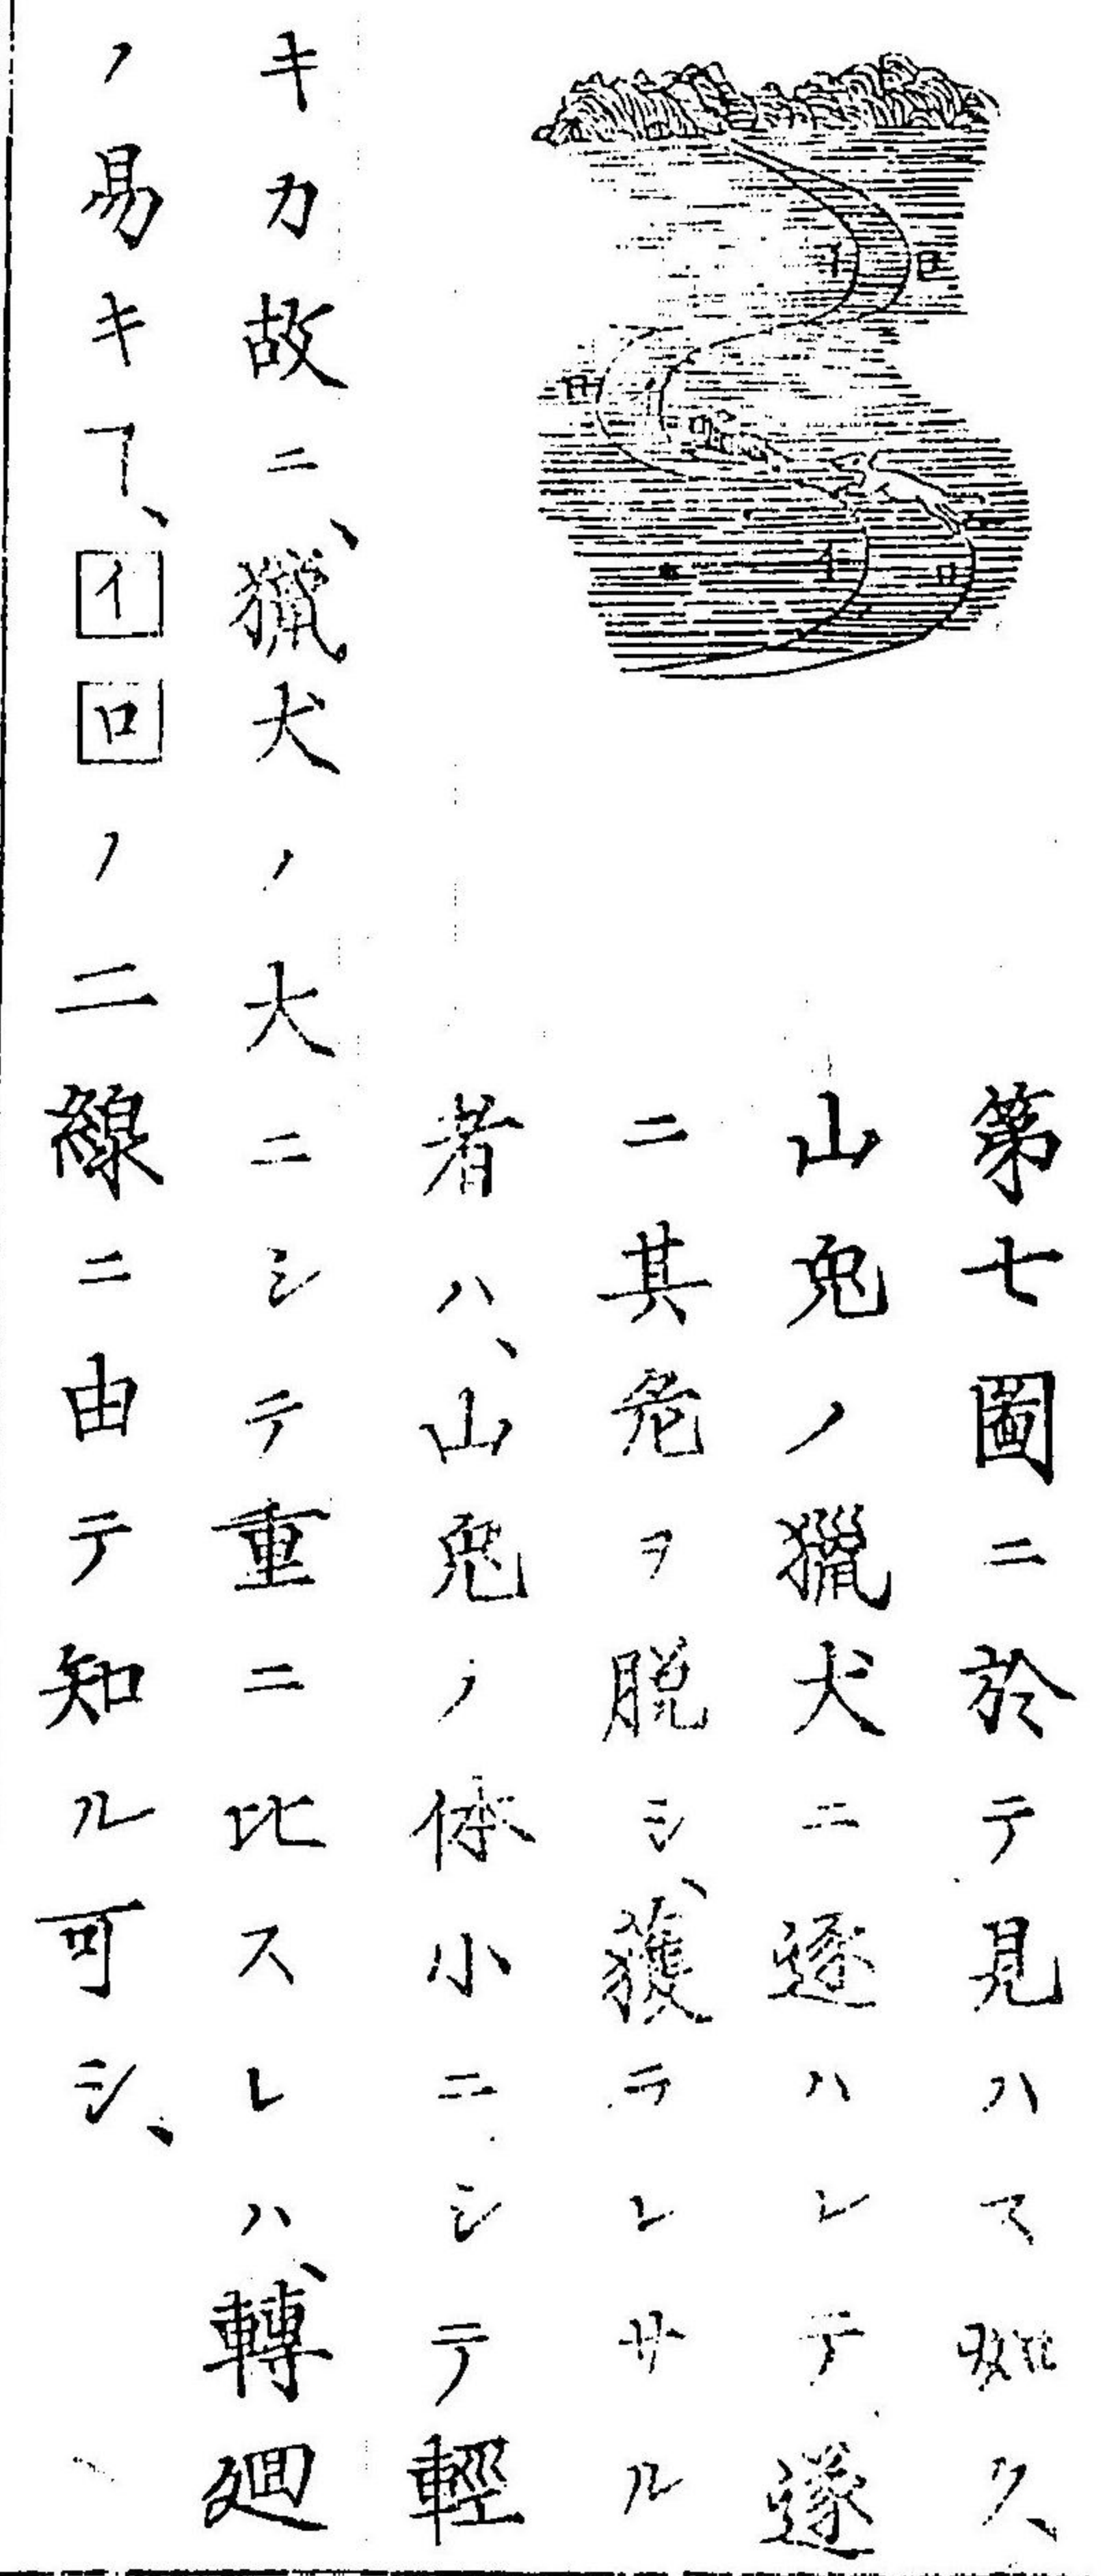 第七圖ニ於テ見ハス如ク、
山兎ノ獵犬ニ逐ハレテ遂
ニ其危ヲ脱シ、獲ラレサル
者ハ、山兎ノ体小ニシテ輕
キカ故ニ、獵犬ノ大ニシテ重ニ比スレハ、轉廻
ノ易キヿ、イロノ二線ニ由テ知ル可シ、
イ
ロ
ロ
イ
イ
ロ